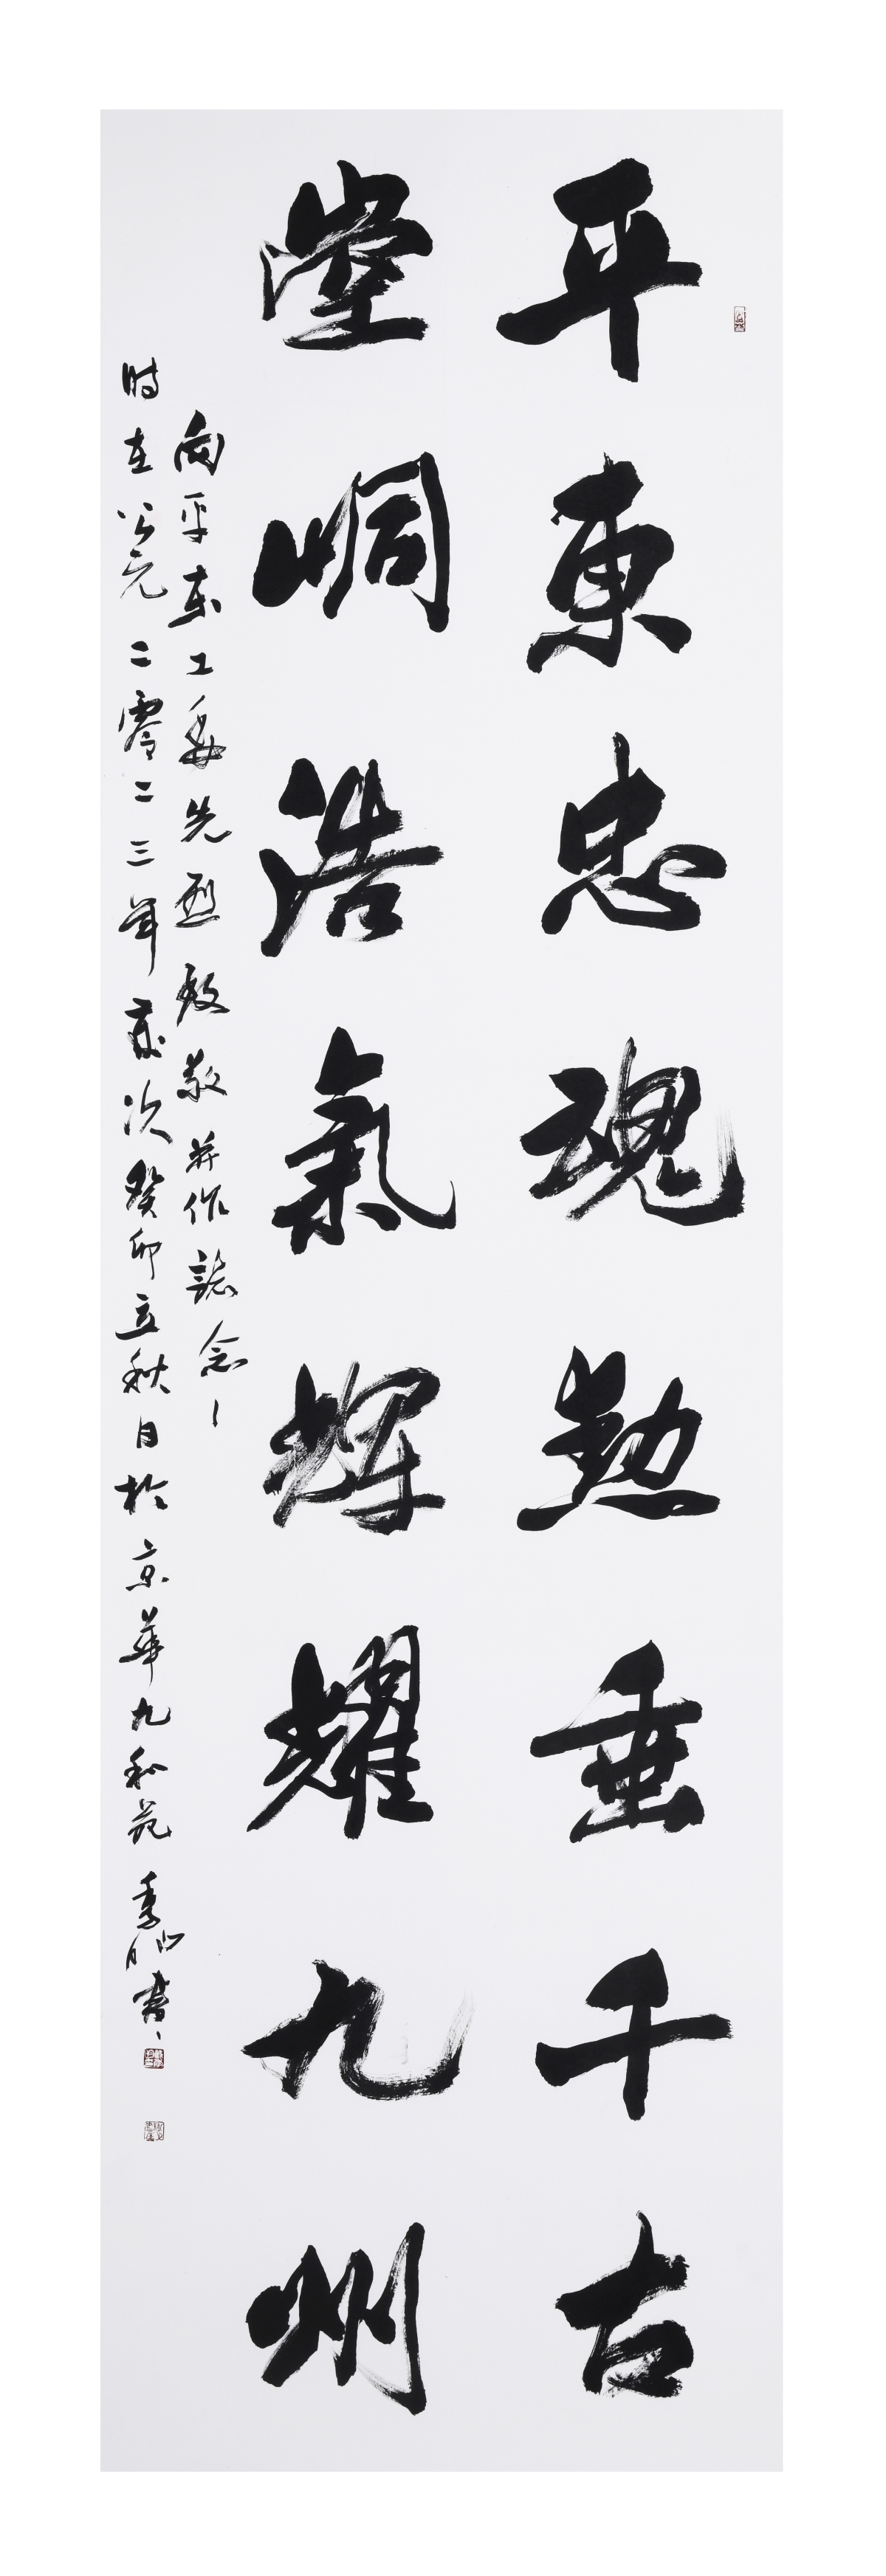 平東忠魂勳垂千古
峒浩氣輝耀九州
向平東工委先烈致敬并作誌念
時在公元二零二三年歲次癸卯立秋日於京華九和苑季書